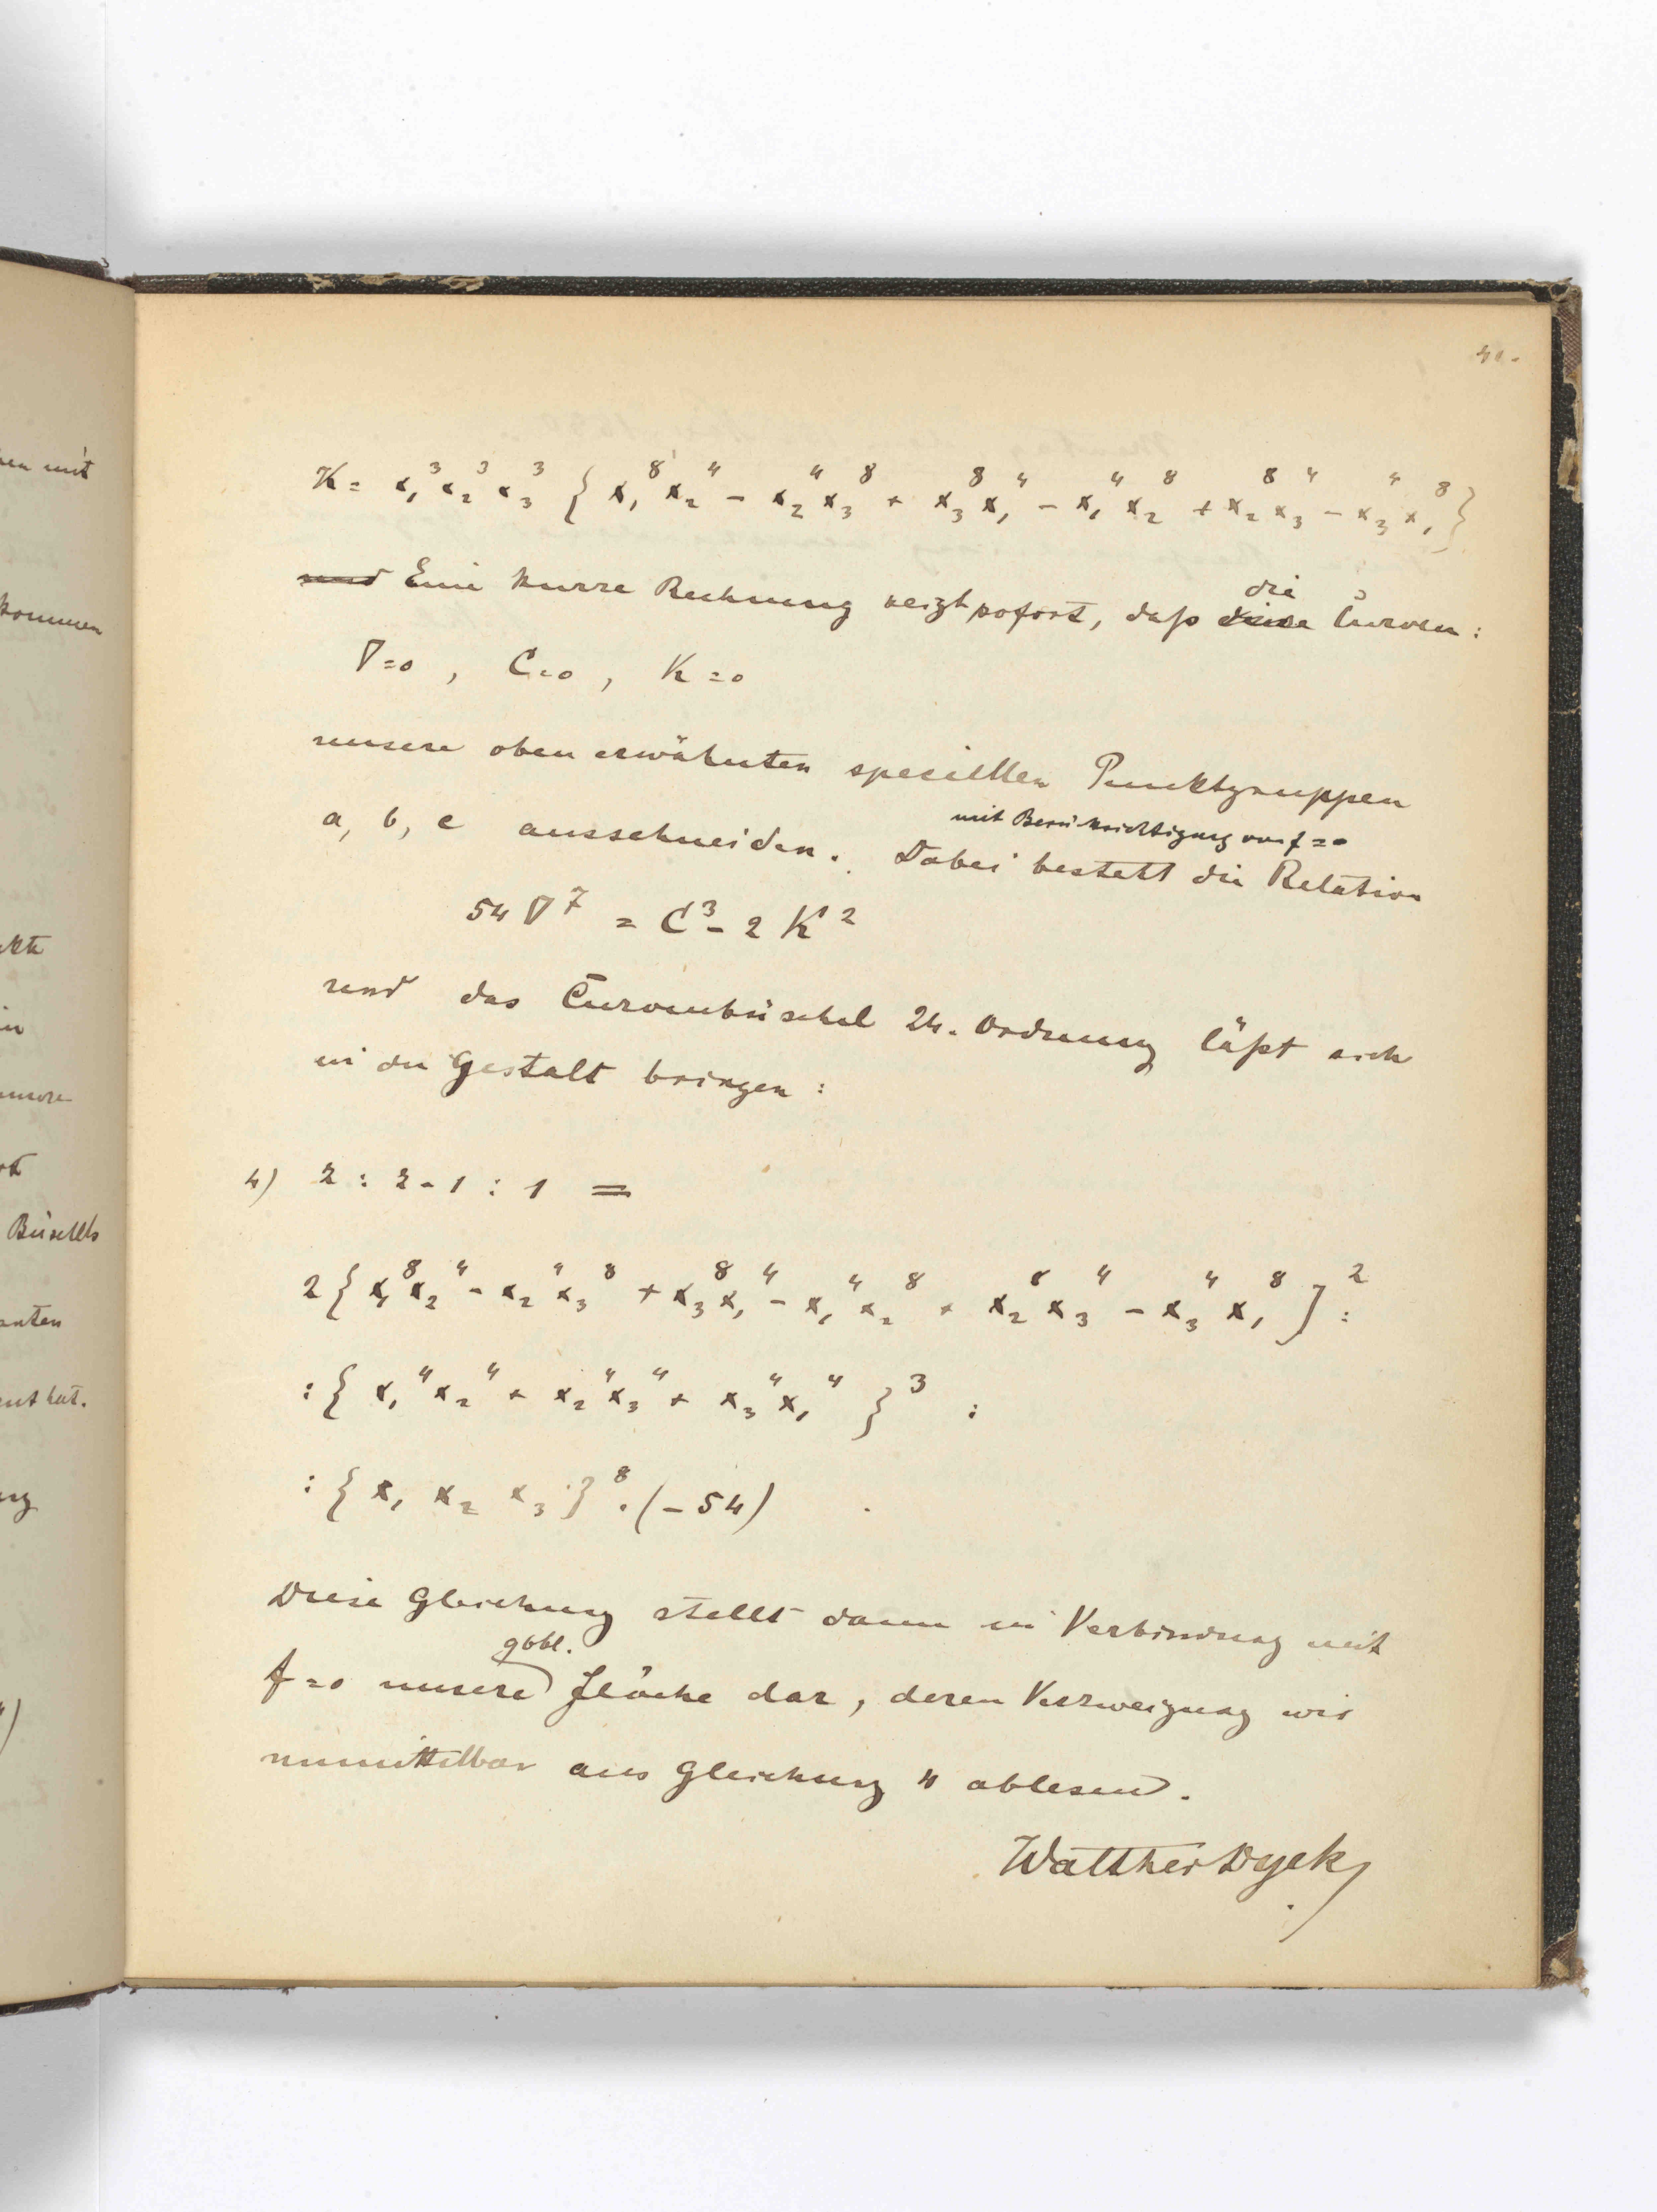 41.
K = x₁³ x₂³ x₃³ { x₁⁸ x₂⁴ - x₂⁴ x₃⁸ + x₃⁸ x₁⁴ - x₁⁴ x₂⁸ + x₂⁸ x₃⁴ - x₃⁴ x₁⁸ }
und Eine kurze Rechnung zeigt sofort, daß die Curven :
∇=0 , C=0 , K=0
unsere oben erwähnten speciellen Punktgruppen
a, b, c ausschneiden. Dabei besteht mit Berücksichtigung von f=0 die Relation
54 ∇⁷ = C³ - 2 K²
und das Curvenbüschel 24. Ordnung läßt sich
in die Gestalt bringen :
4) 2 : 2-1 : 1 =
2 { x₁⁸ x₂⁴ - x₂⁴ x₃⁸ + x₃⁸ x₁⁴ - x₁⁴ x₂⁸ + x₂⁸ x₃⁴ - x₃⁴ x₁⁸ }² :
: { x₁⁴ x₂⁴ + x₂⁴ x₃⁴ + x₃⁴ x₁⁴ }³ :
: { x₁ x₂ x₃ }⁸ . (-54)
Diese Gleichung stellt dann in Verbindung mit
f=0 unsere ggbl. Fläche dar, deren Verzweigung wir
unmittelbar aus Gleichung 4 ablesen.
Walther Dyck
en mit
kommen
Büschels